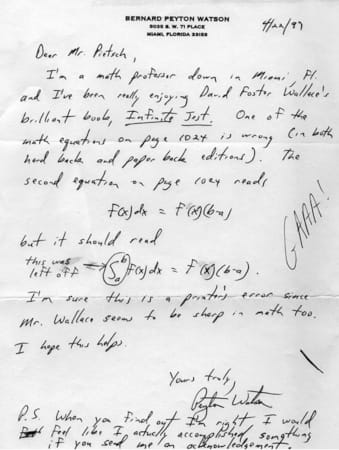 BERNARD PEYTON WATSON
9035 S. W. 71 PLACE
MIAMI, FLORIDA 33156
4/22/97
Dear Mr. Pietsch,
I'm a math professor down in Miami, Fl.
and I've been really enjoying David Foster Wallace's
brilliant book, Infinite Jest. One of the
math equations on page 1024 is wrong (in both
hard back and paper back editions). The
second equation on page 1024 reads
f(x)dx = f'(x)(b-a)
but it should read
this was left off → ∫ₐᵇ f(x)dx = f'(x)(b-a).
GAAA!
I'm sure this is a printer's error since
Mr. Wallace seems to be sharp in math too.
I hope this helps.
Yours truly,
Peyton Watson
P.S. When you find out I'm right, I would
feel like I actually accomplished something
if you send me an acknowledgement.